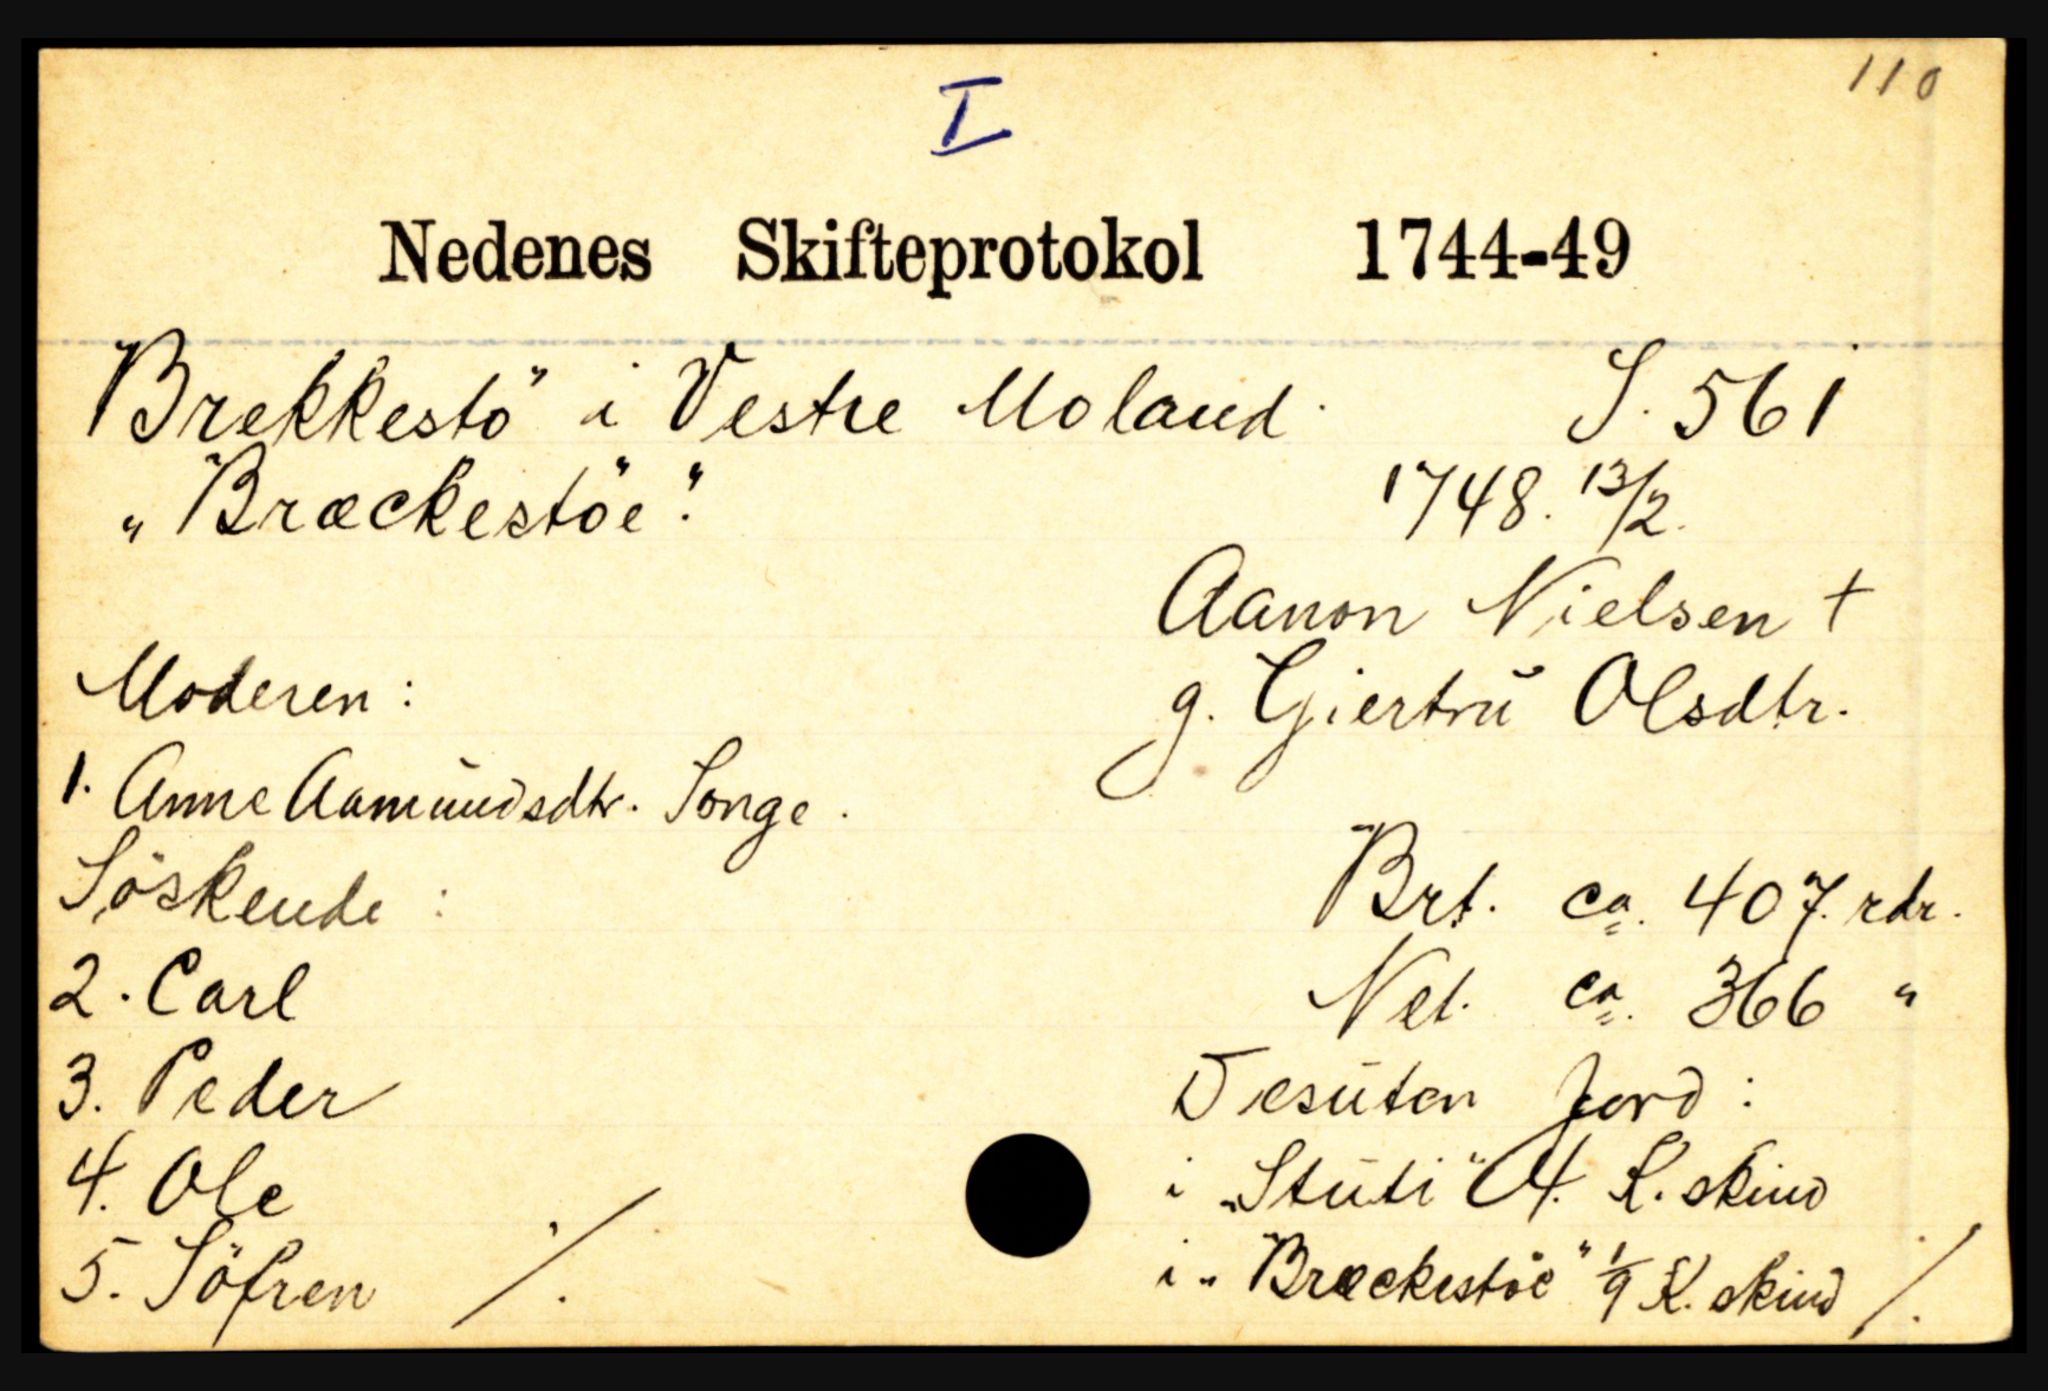 110
I
Nedenes Skifteprotokol 1744-49
Brekkestö i Vestre Moland. S. 561
„Bræckestöe". 1748. 13/2.
Aanon Nielsen +
g. Giertrŭ Olsdtr.
Moderen:
1. Anne Aamŭndsdtr. Songe.
Söskende:
2. Carl
3. Peder
4. Ole
5. Söfren ./.
Brt. ca. 407. rdr.
Net. ca. 366 "
Desŭten Jord:
i „Stŭti" 4. K. skind
i „Bræckestöe" 1/9 K. skind ./.